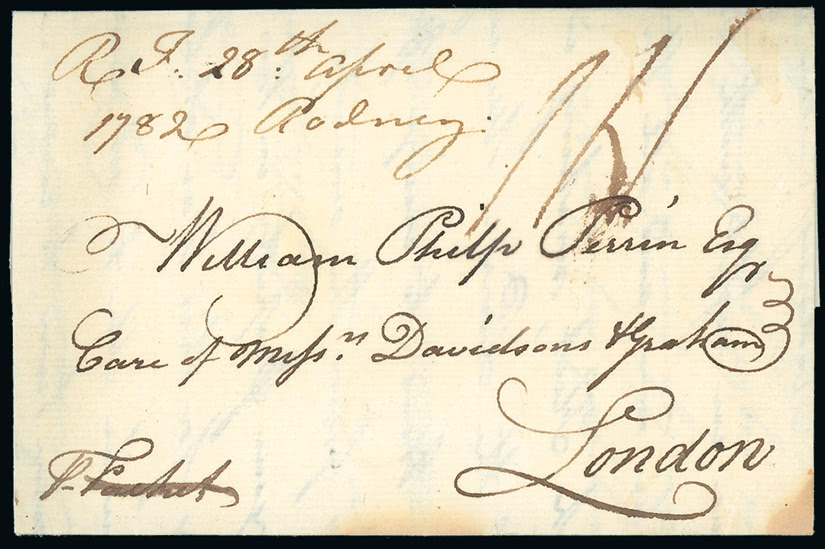 R. F. 28:th April
1782 Rodney.
William Philp Perrin Esqr
Care of Messrs Davidsons & Graham
London
P Packet